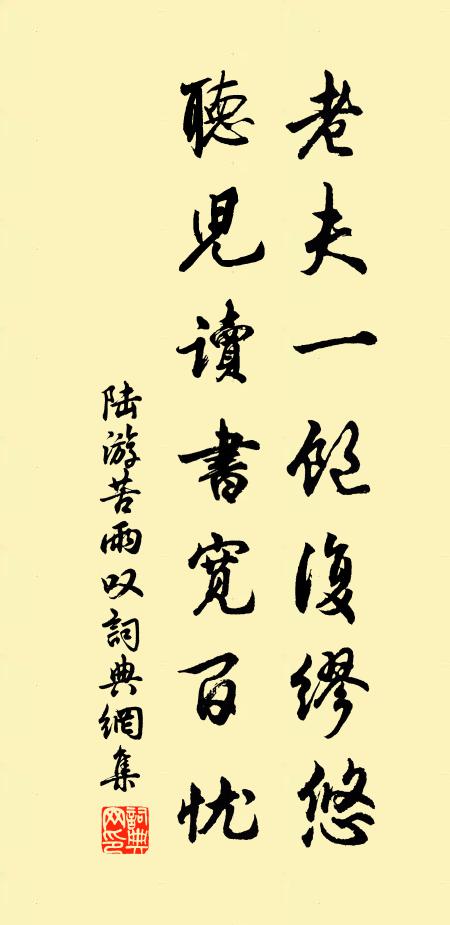 老夫一飽復繆悠
聽兒讀書寬百忧
陆游苦雨叹詞典網集
詞典網印